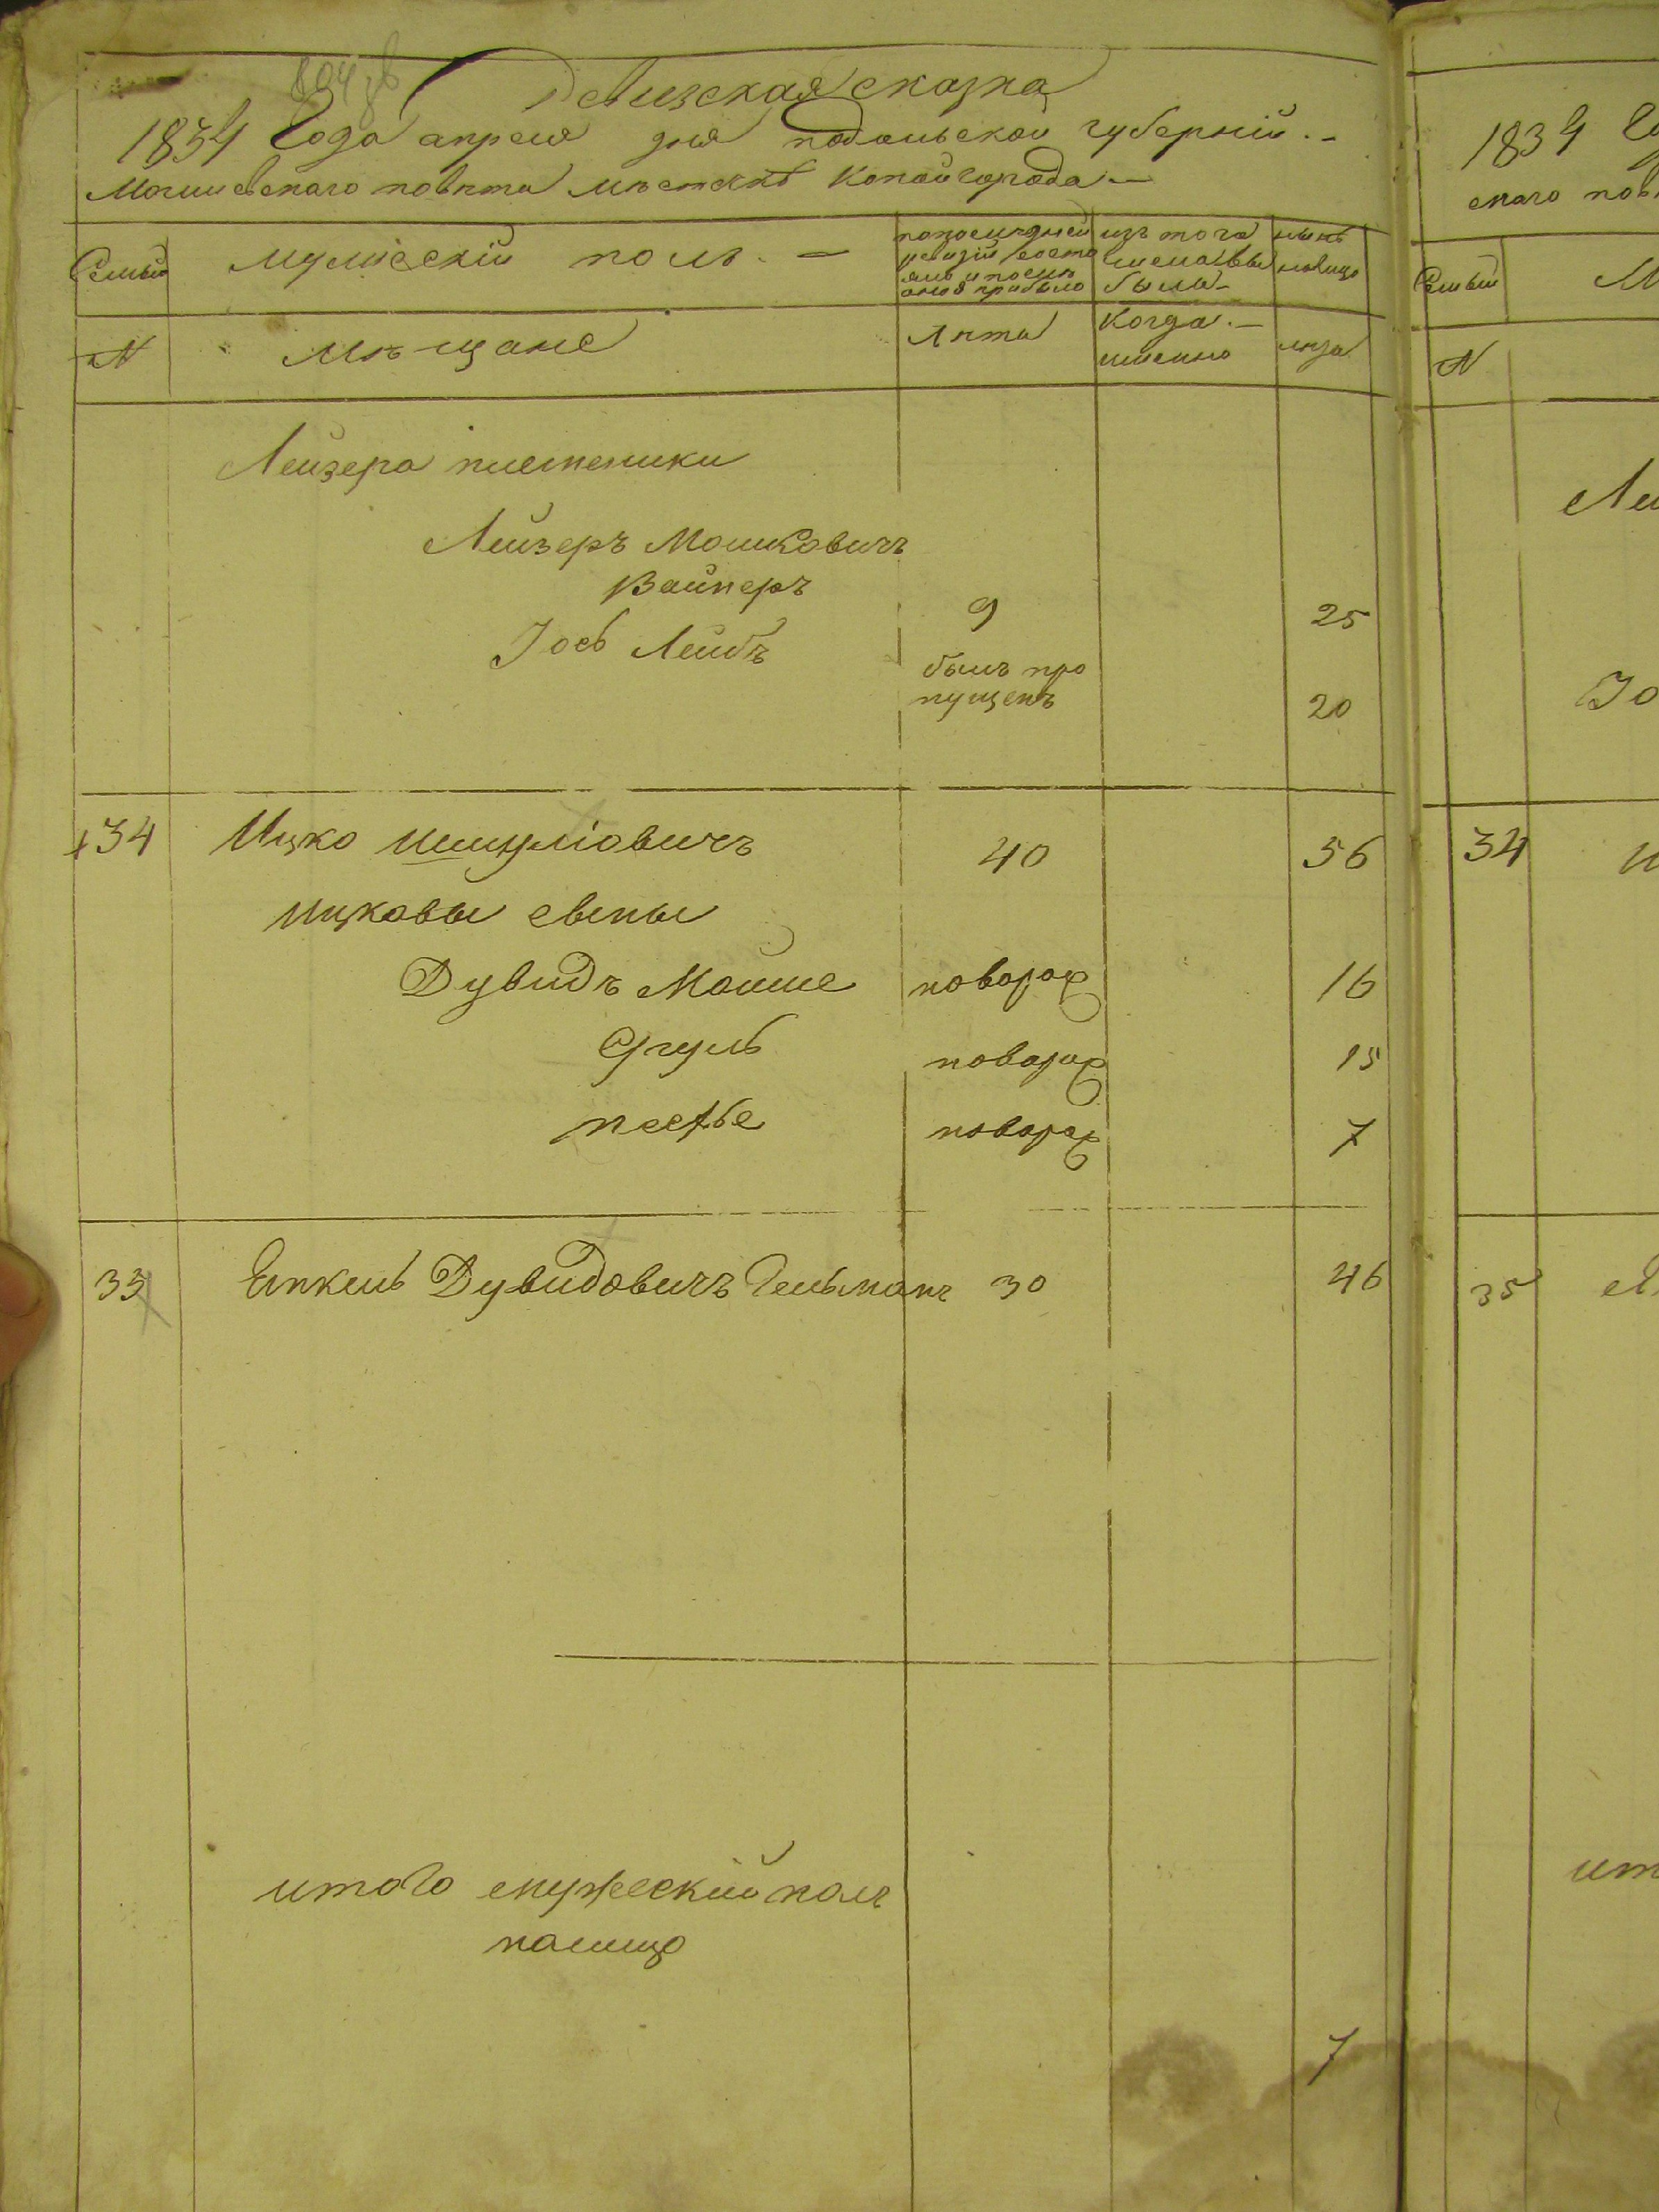 Ревизская сказка
1834 Года апреля дня подольской губерніи.-
Могилевскаго повѣта мѣстечкѣ Копайгорода-
Семьи
мужескій полъ. -
по последней
ревизіи состо
ялъ и после
оной прибыло
изъ того
числа вы
было-
нынѣ
налицо
N
Мѣщане
Лѣта
Когда.-
именно
лѣта
Лейзера племеники
Лейзеръ Мошковичъ
Вайнеръ
9
25
Іось Лейбъ
былъ про
пущенъ
20
34
Ицко Шмулiовичъ
40
56
Ицковы сыны
Дувидъ Мошше
новорож
16
Сруль
новорож
15
новорож
7
35
Янкель Дувидовичъ Гельманъ
30
46
итого мужескій полъ
налицо
7
1834
скаго
Семьи
N
34
35